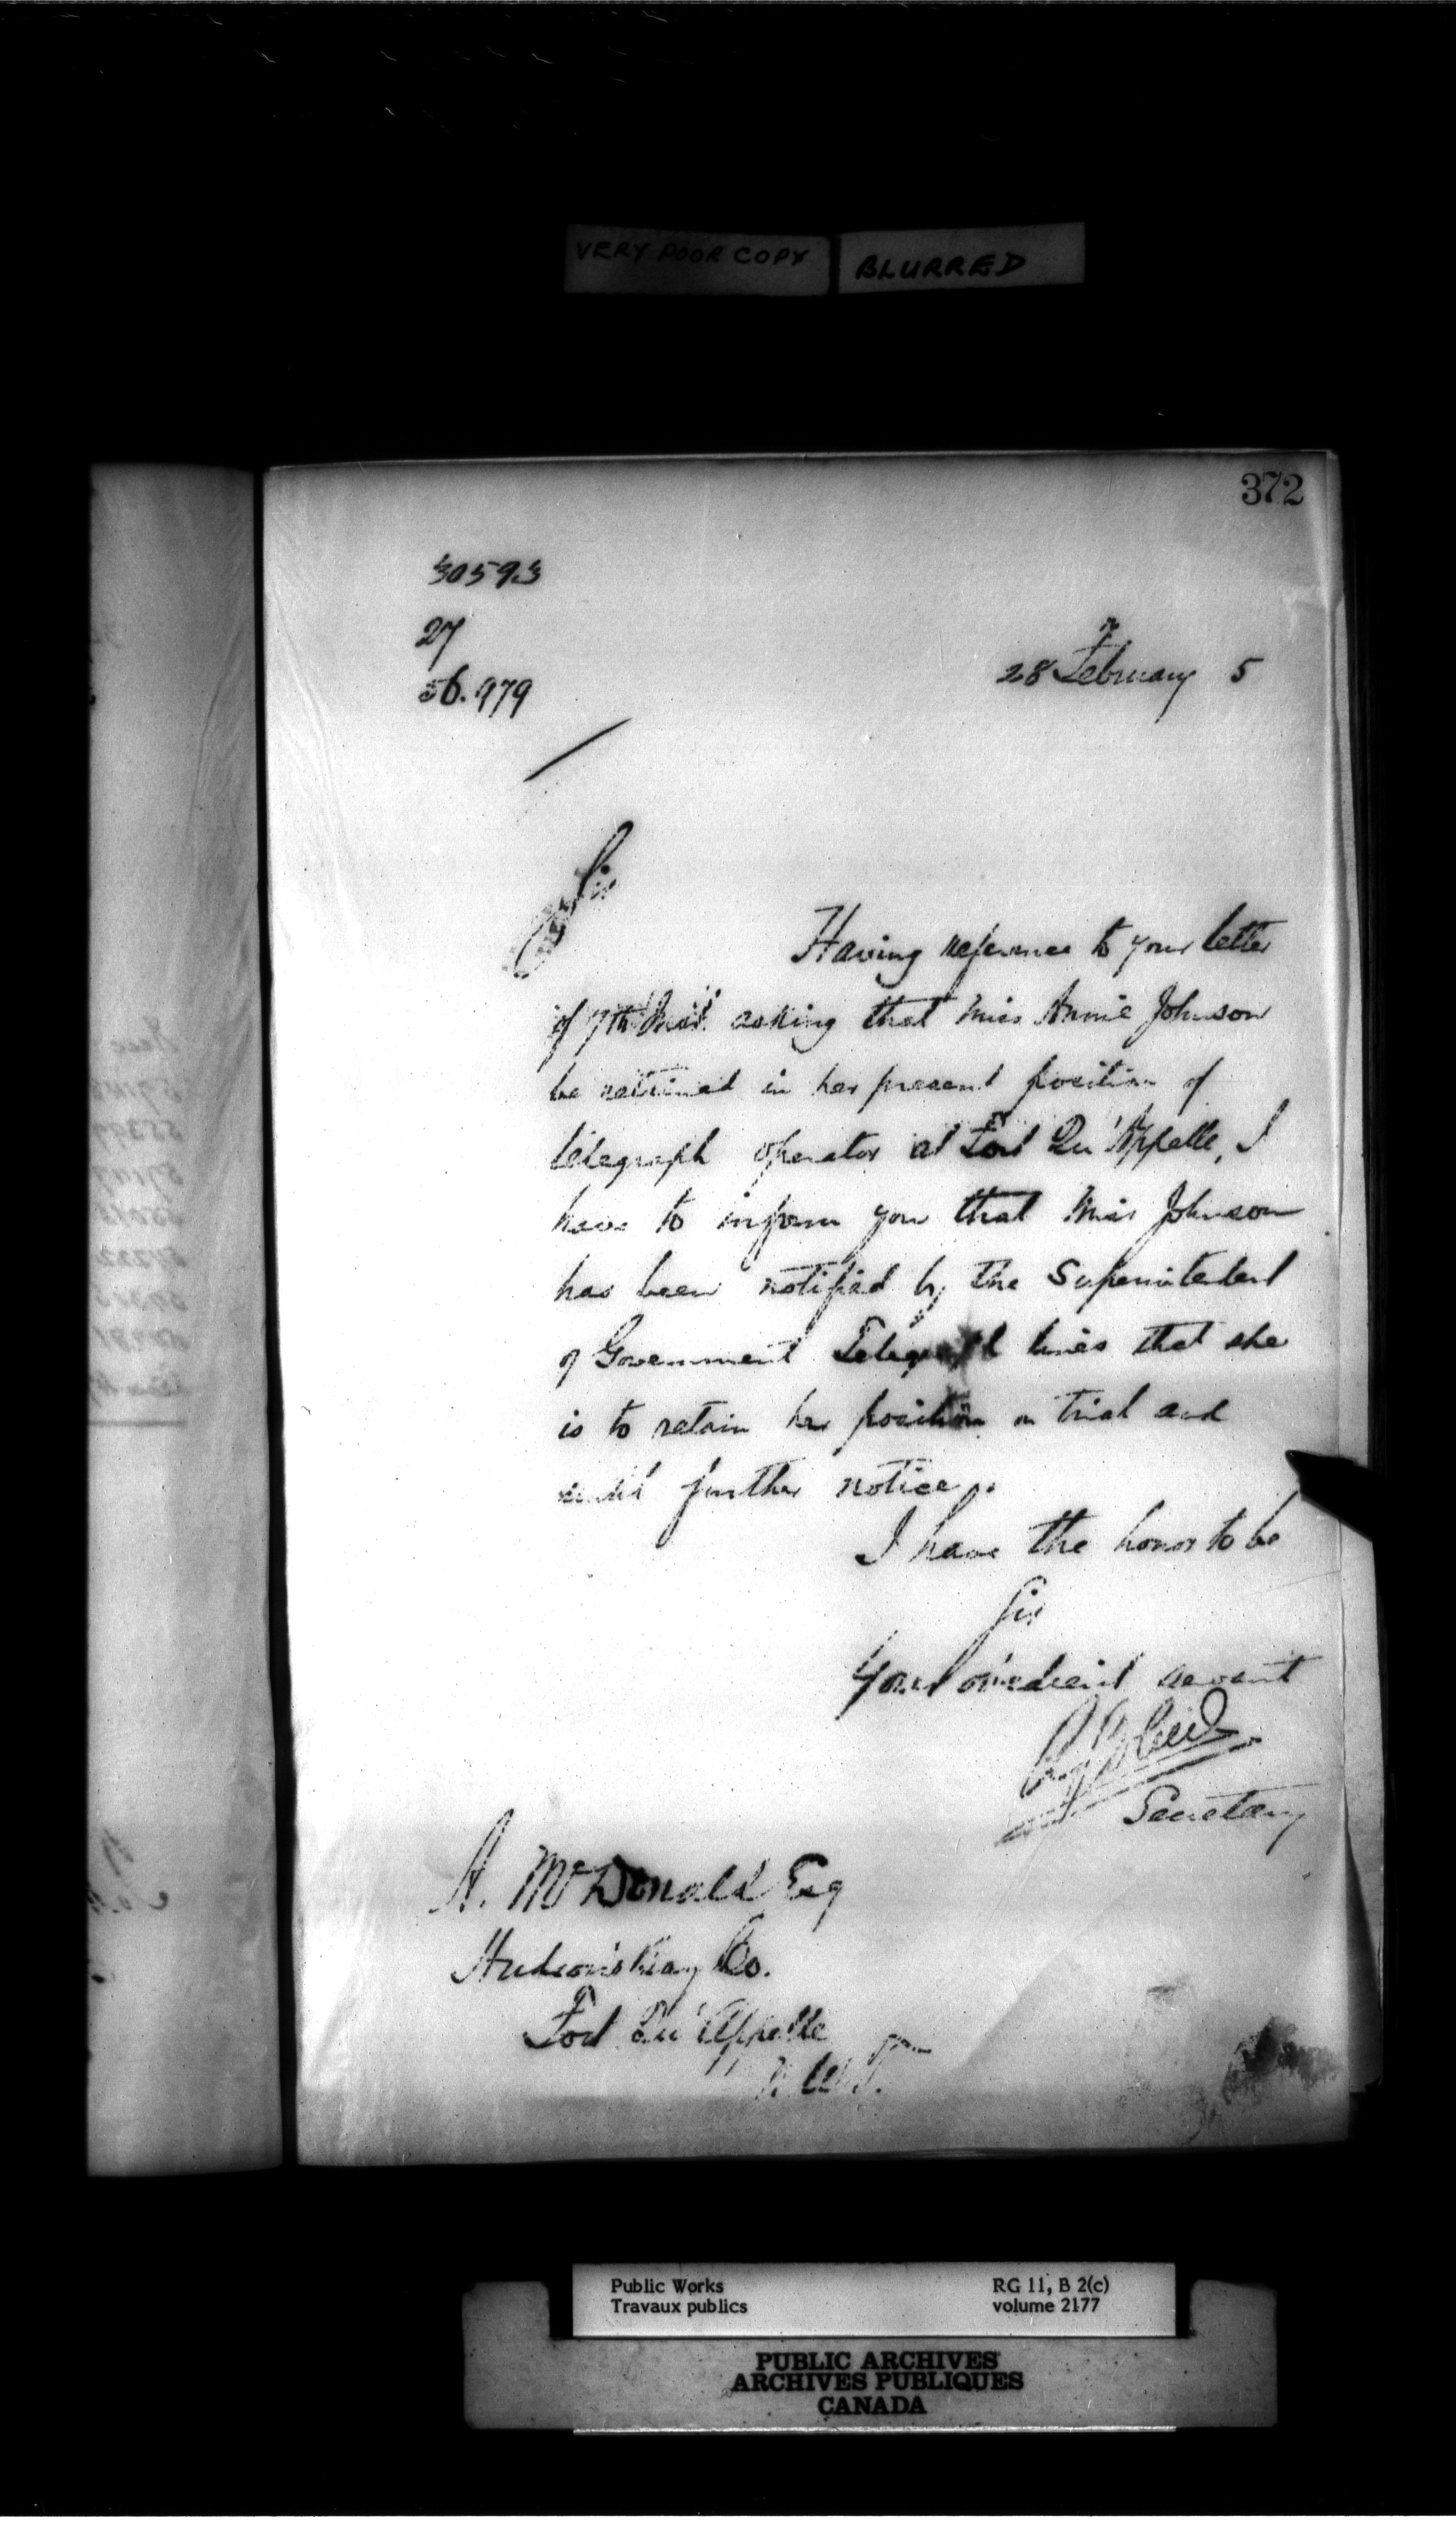 VERY POOR COPY BLURRED
372
30593
27
56.979
28 February 5
Sir
Having reference to your letter
of 7th Inst. asking that Miss Annie Johnson
be retained in her present position of
telegraph operator at Fort Qu'Appelle, I
have to inform you that Miss Johnson
has been notified by the Superintendent
of Government Telegraph lines that she
is to retain her position on trial and
until further notice.
I have the honor to be
Sir
Your obedient servant
Secretary
A. McDonald Esq
Hudson's Bay Co.
Fort Qu'Appelle
N.W.T.
Public Works RG 11, B 2(c)
Travaux publics volume 2177
PUBLIC ARCHIVES
ARCHIVES PUBLIQUES
CANADA